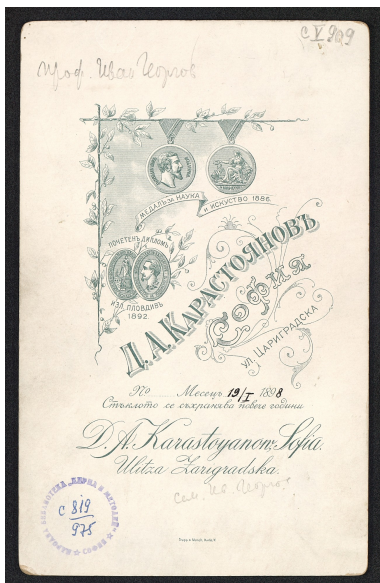 С V 929
проф. Иван Георгов
МЕДАЛЪ ЗА НАУКА И ИСКУСТВО 1886.
ПОЧЕТЕНЪ ДИПЛОМЪ
ИЗЛ. ПЛОВДИВЪ
1892.
Д.А.КАРАСТОЯНОВЪ
София
УЛ. ЦАРИГРАДСКА
No Месецъ 19/I 1898
Стъклото се съхранява повече години
D. A. Karastoyanow, Sofia.
Ulitza Zarigradska.
сем. Ив. Георгов
НАРОДНА БИБЛИОТЕКА „КИРИЛ И МЕТОДИЙ“ СОФИЯ
С 819
975